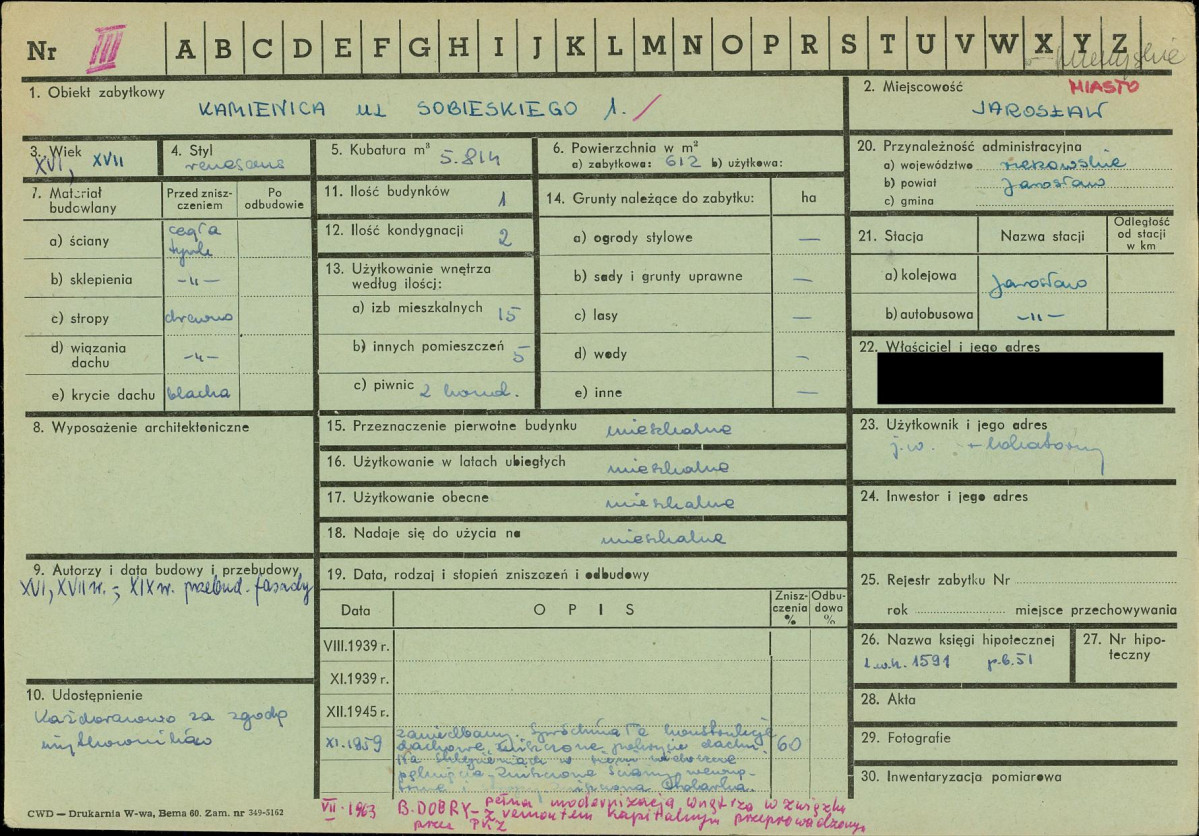 Nr III A B C D E F G H I J K L M N O P R S T U V W X Y Z
MIASTO
1. Obiekt zabytkowy
KAMIENICA ul SOBIESKIEGO 1.
2. Miejscowość
JAROSŁAW
3. Wiek
XVI, XVII
4. Styl
renesans
5. Kubatura m³ 5.814
6. Powierzchnia w m²
a) zabytkowa: 612 b) użytkowa:
20. Przynależność administracyjna
a) województwo rzeszowskie
b) powiat Jarosław
c) gmina
7. Materiał budowlany
Przed zniszczeniem
Po odbudowie
a) ściany cegła tynk
b) sklepienia -„-
c) stropy drewno
d) wiązania dachu -„-
e) krycie dachu blacha
11. Ilość budynków 1
12. Ilość kondygnacji 2
13. Użytkowanie wnętrza według ilości:
a) izb mieszkalnych 15
b) innych pomieszczeń 5
c) piwnic 2 kond.
14. Grunty należące do zabytku: ha
a) ogrody stylowe —
b) sady i grunty uprawne —
c) lasy —
d) wody —
e) inne —
21. Stacja
Nazwa stacji
Odległość od stacji w km
a) kolejowa Jarosław
b) autobusowa -„-
22. Właściciel i jego adres
8. Wyposażenie architektoniczne
15. Przeznaczenie pierwotne budynku mieszkalne
16. Użytkowanie w latach ubiegłych mieszkalne
17. Użytkowanie obecne mieszkalne
18. Nadaje się do użycia na mieszkalne
23. Użytkownik i jego adres
j.w. + lokatorzy
24. Inwestor i jego adres
9. Autorzy i data budowy i przebudowy
XVI, XVII w. ; XIX w. przebud. fasady
19. Data, rodzaj i stopień zniszczeń i odbudowy
Data
OPIS
Zniszczenia %
Odbudowa %
VIII.1939 r.
XI.1939 r.
XII.1945 r.
XI.1959 zaniedbany. Spróchniałe konstrukcje
dachowe, zniszczone pokrycie dachu. 60
Na sklepieniach w sieni widoczne
pęknięcia. Zniszczone ściany wewnę-
trzne i stolarka.
VII.1963 B. DOBRY – pełna modernizacja wnętrza w związku
z remontem kapitalnym przeprowadzonym
przez PKZ
25. Rejestr zabytku Nr
rok miejsce przechowywania
26. Nazwa księgi hipotecznej
L.w.h. 1591 p.b.51
27. Nr hipoteczny
28. Akta
29. Fotografie
30. Inwentaryzacja pomiarowa
10. Udostępnienie
Każdorazowo za zgodą
użytkowników
CWD — Drukarnia W-wa, Bema 60. Zam. nr 349-5162